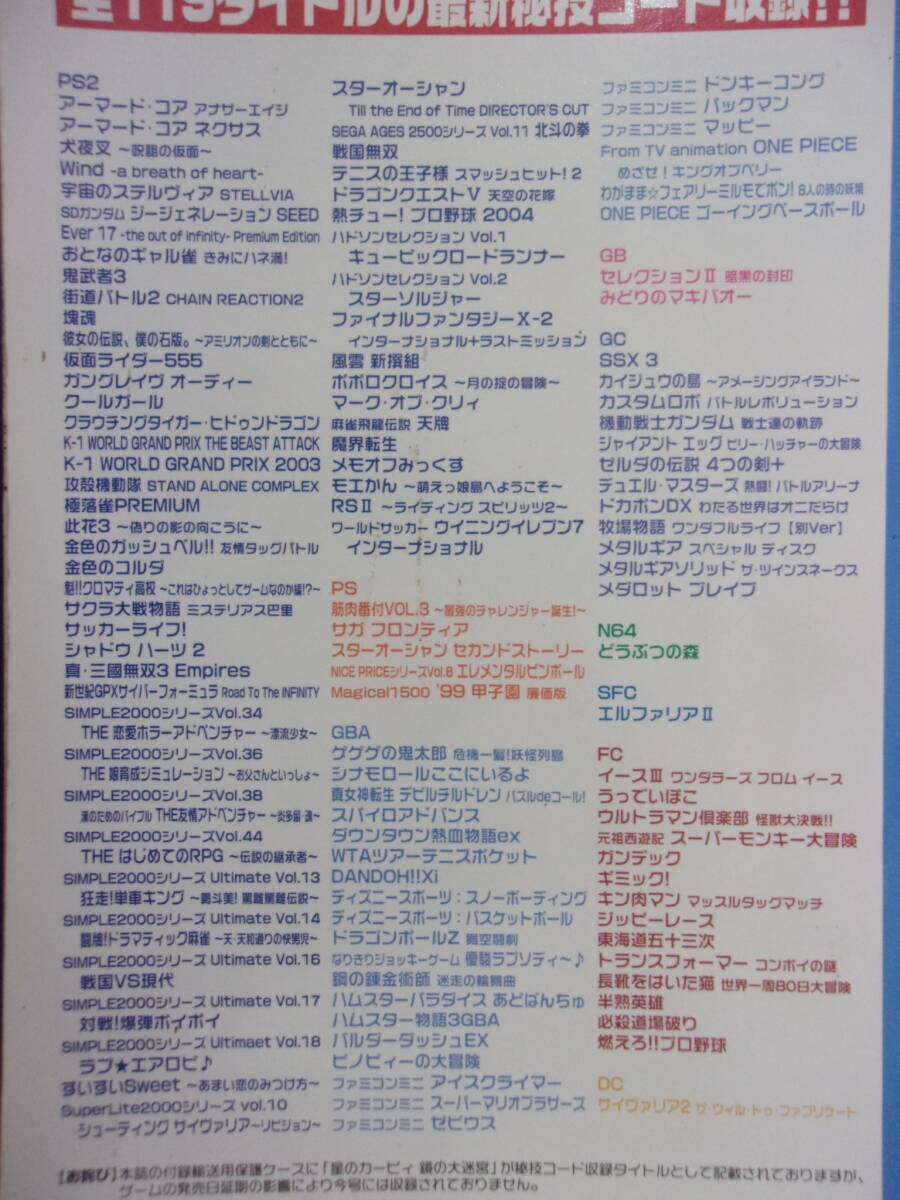 全119タイトルの最新秘技コード収録!!
PS2
アーマード・コア アナザーエイジ
アーマード・コア ネクサス
犬夜叉 ～呪詛の仮面～
Wind -a breath of heart-
宇宙のステルヴィア STELLVIA
SDガンダム ジージェネレーション SEED
Ever 17 -the out of infinity- Premium Edition
おとなのギャル雀 きみにハネ満!
鬼武者3
街道バトル2 CHAIN REACTION2
塊魂
彼女の伝説、僕の石版。～アミリオンの剣とともに～
仮面ライダー555
ガングレイヴ オーディー
クールガール
クラウチングタイガー・ヒドゥンドラゴン
K-1 WORLD GRAND PRIX THE BEAST ATTACK
K-1 WORLD GRAND PRIX 2003
攻殻機動隊 STAND ALONE COMPLEX
極落雀PREMIUM
此花3 ～偽りの影の向こうに～
金色のガッシュベル!! 友情タッグバトル
金色のコルダ
魁!!クロマティ高校 ～これはひょっとしてゲームなのか編!?～
サクラ大戦物語 ミステリアス巴里
サッカーライフ!
シャドウ ハーツ 2
真・三國無双3 Empires
新世紀GPXサイバーフォーミュラ Road To The INFINITY
SIMPLE2000シリーズVol.34
THE 恋愛ホラーアドベンチャー ～漂流少女～
SIMPLE2000シリーズVol.36
THE 娘育成シミュレーション ～お父さんといっしょ～
SIMPLE2000シリーズVol.38
漢のためのバイブル THE友情アドベンチャー ～炎多留・魂～
SIMPLE2000シリーズVol.44
THE はじめてのRPG ～伝説の継承者～
SIMPLE2000シリーズ Ultimate Vol.13
狂走!単車キング ～喧斗美! 罵離罵離伝説～
SIMPLE2000シリーズ Ultimate Vol.14
闘牌!ドラマティック麻雀 ～天・天和通りの快男児～
SIMPLE2000シリーズ Ultimate Vol.16
戦国VS現代
SIMPLE2000シリーズ Ultimate Vol.17
対戦!爆弾ポイポイ
SIMPLE2000シリーズ Ultimaet Vol.18
ラブ★エアロビ♪
すいすいSweet ～あまい恋のみつけ方～
SuperLite2000シリーズ vol.10
シューティング サイヴァリア～リビジョン～
スターオーシャン
Till the End of Time DIRECTOR'S CUT
SEGA AGES 2500シリーズ Vol.11 北斗の拳
戦国無双
テニスの王子様 スマッシュヒット! 2
ドラゴンクエストV 天空の花嫁
熱チュー! プロ野球 2004
ハドソンセレクション Vol.1
キュービックロードランナー
ハドソンセレクション Vol.2
スターソルジャー
ファイナルファンタジーX-2
インターナショナル+ラストミッション
風雲 新撰組
ポポロクロイス ～月の掟の冒険～
マーク・オブ・クリィ
麻雀飛龍伝説 天牌
魔界転生
メモオフみっくす
モエかん ～萌えっ娘島へようこそ～
RSⅡ ～ライディング スピリッツ2～
ワールドサッカー ウイニングイレブン7
インターナショナル
PS
筋肉番付VOL.3 ～最強のチャレンジャー誕生!～
サガ フロンティア
スターオーシャン セカンドストーリー
NICE PRICEシリーズVol.8 エレメンタルピンボール
Magical1500 '99 甲子園 廉価版
GBA
ゲゲゲの鬼太郎 危機一髪!妖怪列島
シナモロールここにいるよ
真女神転生 デビルチルドレン パズルdeコール!
スパイロアドバンス
ダウンタウン熱血物語ex
WTAツアーテニスポケット
DANDOH!!Xi
ディズニースポーツ:スノーボーディング
ディズニースポーツ:バスケットボール
ドラゴンボールZ 舞空闘劇
なりきりジョッキーゲーム 優駿ラプソディ～♪
鋼の錬金術師 迷走の輪舞曲
ハムスターパラダイス あどばんちゅ
ハムスター物語3GBA
バルダーダッシュEX
ピノビィーの大冒険
ファミコンミニ アイスクライマー
ファミコンミニ スーパーマリオブラザーズ
ファミコンミニ ゼビウス
ファミコンミニ ドンキーコング
ファミコンミニ パックマン
ファミコンミニ マッピー
From TV animation ONE PIECE
めざせ!キングオブベリー
わがまま☆フェアリーミルモでポン! 8人の時の妖精
ONE PIECE ゴーイングベースボール
GB
セレクションⅡ 暗黒の封印
みどりのマキバオー
GC
SSX 3
カイジュウの島 ～アメージングアイランド～
カスタムロボ バトルレボリューション
機動戦士ガンダム 戦士達の軌跡
ジャイアント エッグ ビリー・ハッチャーの大冒険
ゼルダの伝説 4つの剣+
デュエル・マスターズ 熱闘! バトルアリーナ
ドカポンDX わたる世界はオニだらけ
牧場物語 ワンダフルライフ【別Ver】
メタルギア スペシャル ディスク
メタルギアソリッド ザ・ツインスネークス
メダロット ブレイブ
N64
どうぶつの森
SFC
エルファリアⅡ
FC
イースⅢ ワンダラーズ フロム イース
うっていぽこ
ウルトラマン倶楽部 怪獣大決戦!!
元祖西遊記 スーパーモンキー大冒険
ガンデック
ギミック!
キン肉マン マッスルタッグマッチ
ジッピーレース
東海道五十三次
トランスフォーマー コンボイの謎
長靴をはいた猫 世界一周80日大冒険
半熟英雄
必殺道場破り
燃えろ!!プロ野球
DC
サイヴァリア2 ザ・ウィル・トゥ・ファブリケート
【お詫び】本誌の付録輸送用保護ケースに「星のカービィ 鏡の大迷宮」が秘技コード収録タイトルとして記載されておりますが、
ゲームの発売日延期の影響により今号には収録されておりません。